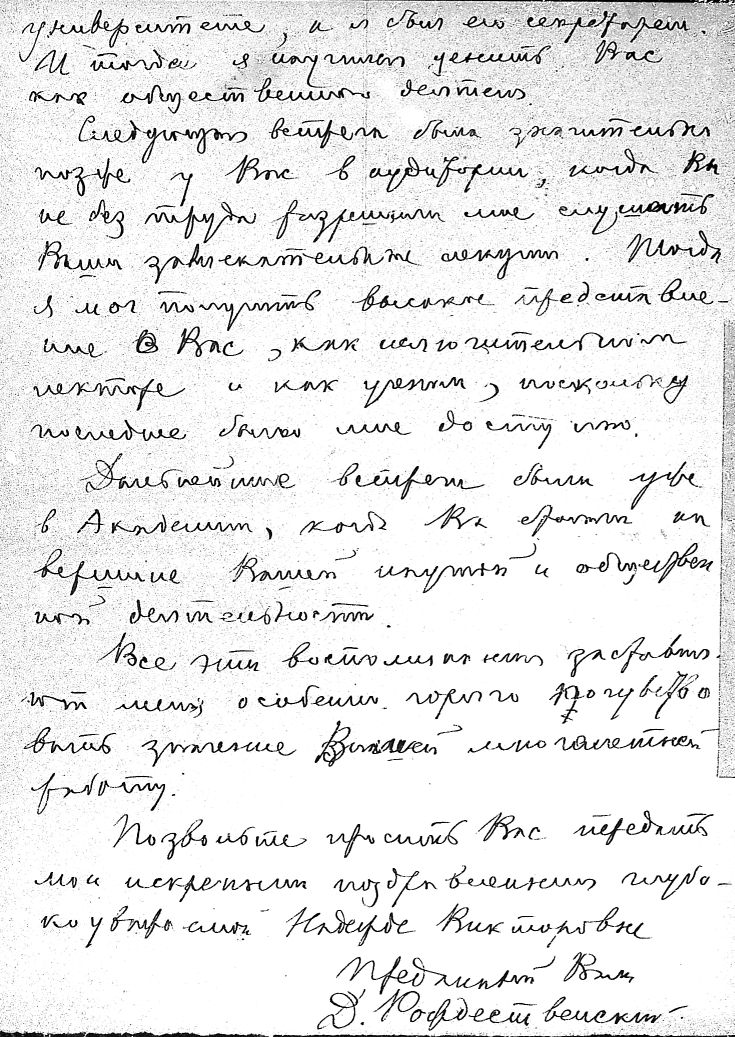 университете, и я был его секретарем.
И тогда я научился ценить Вас
как общественного деятеля.
Следующая встреча была значительно
позже у Вас в аудитории, когда Вы
не без труда разрешили мне слушать
Ваши увлекательные лекции. Тогда
я мог получить высокое представле-
ние о Вас, как исключительном
лекторе и как ученом, поскольку
последнее было мне доступно.
Дальнейшие встречи были уже
в Академии, когда Вы стояли на
вершине Вашей научной и обществен
ной деятельности.
Все эти воспоминания заставля-
ют меня особенно горячо почувство
вать значение Вашей многолетней
работы.
Позвольте просить Вас передать
мои искренния поздравления глубо-
коуважаемой Надежде Викторовне
Преданный Вам
Д. Рождественский.